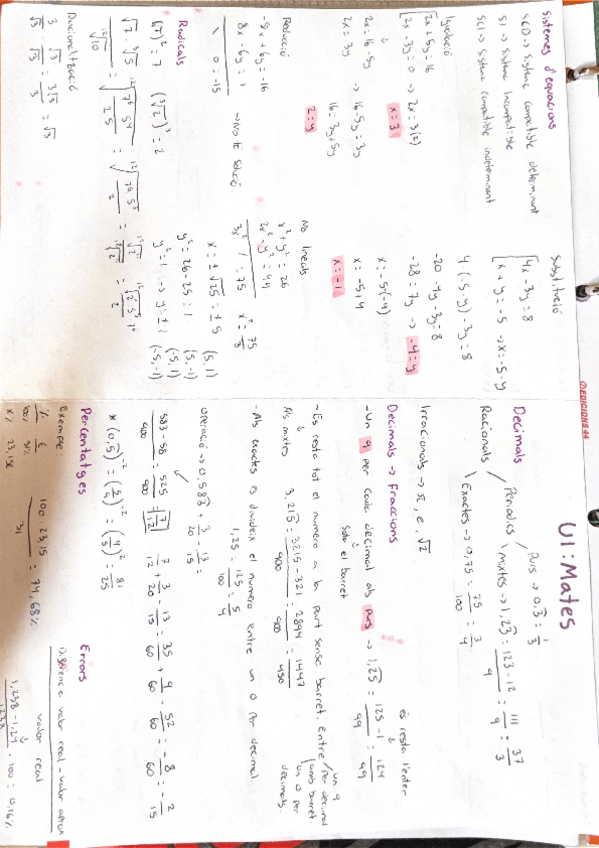 U1: Mates
Decimals
Racionals
Periòdics
Purs → 0,3 = 1/3
mixtes → 1,23 = 123-12/9 = 111/9 = 37/3
Exactes → 0,75 = 75/100 = 3/4
Irracionals → π, e, √2
Decimals → Fraccions
- Un 9 per cada decimal als purs → 1,25 = 125-1/99 = 124/99
Sota el barret
és resta l'enter
- Es resta tot el numero a la part sense barret. Entre un 9 per decimal amb barret un 0 per decimals.
Als mixtes 3,215 = 3215-321/900 = 2894/900 = 1447/450
- Als exactes es divideix el numero entre un 0 per decimal
1,25 = 125/100 = 5/4
operació → 0,583 + 3/20 - 13/15 =
583-58/900 = 525/900 = 7/12
7/12 + 3/20 - 13/15 = 35/60 + 9/60 - 52/60 = -8/60 = -2/15
* (0,5)^-2 = (5/9)^-2 = (9/5)^2 = 81/25
Percentatges
Exemple:
% €
100% 31
x% 23,15€
100·23,15/31 = 74,68%
Errors
valor real
1,238-1,24
· 100 = 0,16%
@EDICIONS44
Sistemes d'equacions
SCD → Sistema compatible determinant
SI → Sistema Incompatible
SCI → Sistema compatible indeterminant
Igualació
2x + 5y = 16
2x - 3y = 0 → 2x = 3(2)
x = 3
2x = 16-5y → 16-5y = 3y
2x = 3y 16 = 3y+5y
2 = y
Reducció
-8x + 6y = -16
8x - 6y = 1
0 = -15
→ No té solució.
Radicals
(√7)² = 7 (³√2)³ = 2
Racionalització
3/√3 · √3/√3 = 3√3/3 = √3
Substitució
4x - 3y = 8
x + y = -5 → x = -5-y
4(-5-y) - 3y = 8
-20 -4y -3y = 8
-28 = 7y → -4 = y
x = -5-(-4)
x = -5+4
x = -1
No lineals
x² + y² = 26
2x² - y² = 49
3x² / = 75 x² = 75/3
x = ±√25 = ±5
y² = 26-25 = 1
y² = 1 → y = ±1
(5, 1)
(5, -1)
(-5, 1)
(-5, -1)